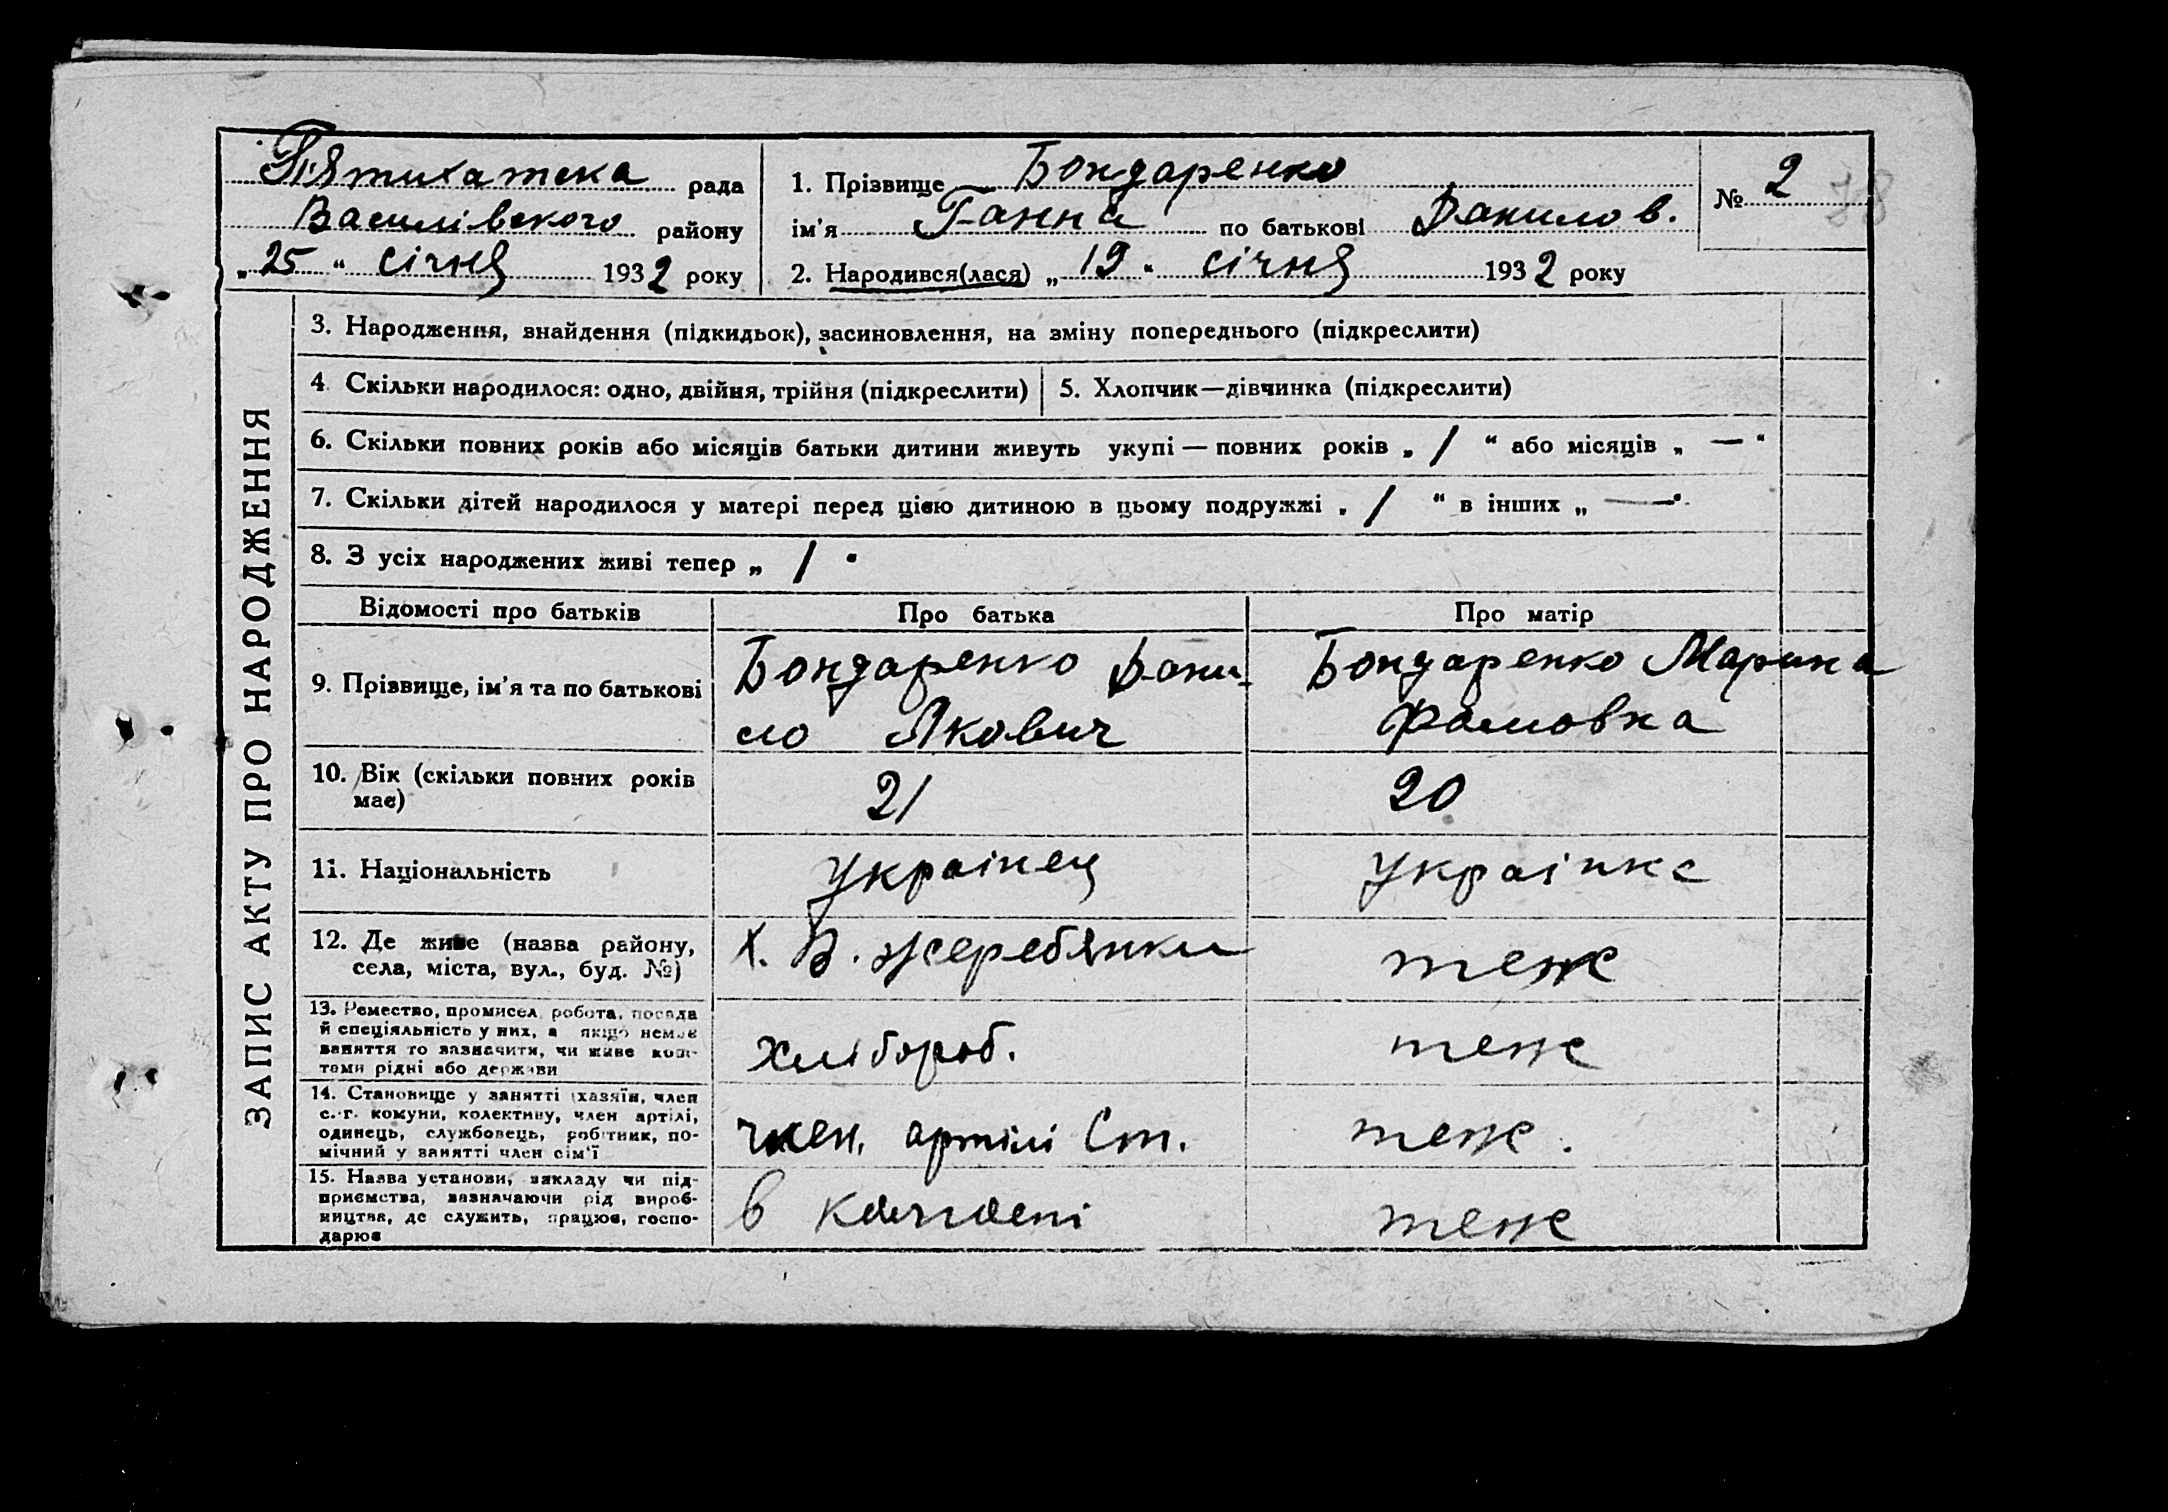 Пятихатска рада
Василівского району
„25“ січня 1932 року
1. Прізвище Бондаренко
ім'я Ганна по батькові Данилов.
2. Народився(лася) „19“ січня 1932 року
№ 2
38
ЗАПИС АКТУ ПРО НАРОДЖЕННЯ
3. Народження, внайдення (підкидьок), засиновлення, на зміну попереднього (підкреслити)
4. Скільки народилося: одно, двійня, трійня (підкреслити) 5. Хлопчик—дівчинка (підкреслити)
6. Скільки повних років або місяців батьки дитини живуть укупі — повних років „ 1 “ або місяців „ — “
7. Скільки дітей народилося у матері перед цією дитиною в цьому подружжі „ 1 “ в інших „ — “
8. З усіх народжених живі тепер „ 1 “
Відомості про батьків Про батька Про матір
9. Прізвище, ім'я та по батькові
Бондаренко Дани-
ло Якович
Бондаренко Марина
10. Вік (скільки повних років
має)
21
20
11. Національність
Українец
Українка
12. Де живе (назва району,
села, міста, вул., буд. №)
Х. В. Жеребянки
теж
13. Ремество, промисел, робота, посада
й спеціяльність у них, а якщо немає
заняття то зазначити, чи живе кош-
тами рідні або держави
Хлібороб.
теж
14. Становище у занятті (хазяїн, член
с.-г. комуни, колективу, член артілі,
одинець, службовець, робітник, по-
мічний у занятті член сім'ї
член. артілі Ст.
теж.
15. Назва установи, закладу чи під-
приємства, зазначаючи рід вироб-
ництва, де служить, працює, госпо-
дарює
в
теж